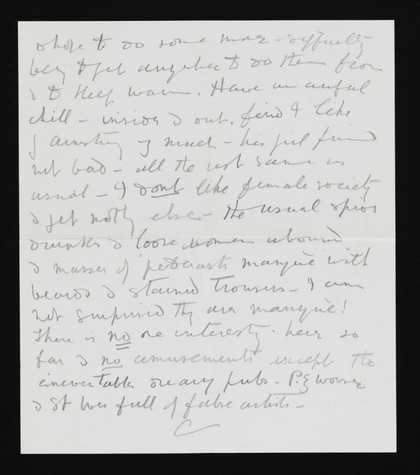 & hope to do some more - difficulty
being to get anywhere to do them from
& to keep warm. Have an awful
chill - inside & out. find I like
J. much - his girl friend
not bad - all the rest same as
usual - I dont like female society
& get nothing else - the usual spivs
drunks & loose women abound -
& masses of pederasts manqué with
beards & stained trousers - I am
not surprised they are manqué!
There is no one interesting here so
far & no amusements except the
inevitable dreary pubs - P.Z worse
& St Ives full of false artists -
C